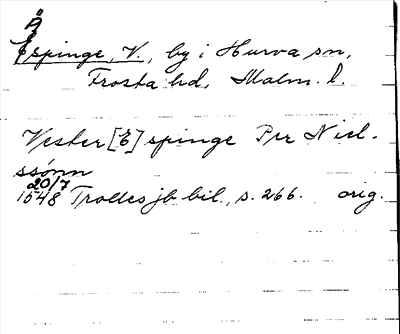 Å
Espinge, V., by i Hurva sn,
Frosta hd, Malm. l.
Vester [E] spinge Per Niel-
ssónn
20/7
1548 Trolles jb bil., s. 266. orig.